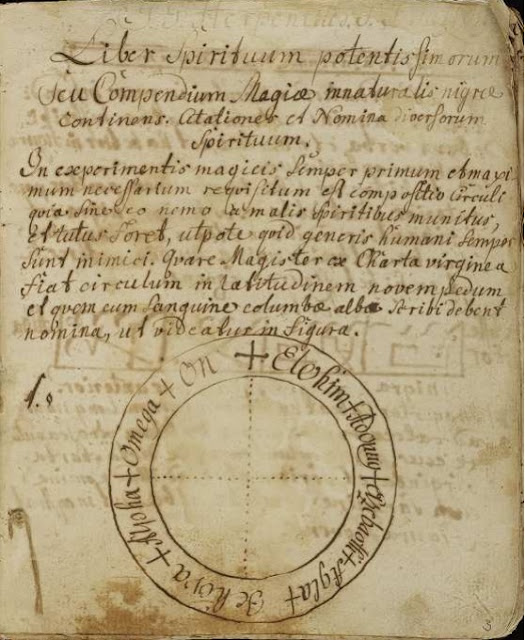 Liber Spirituum potentissimorum
Seu Compendium Magiæ innaturalis nigræ
Continens. Citationes et Nomina diversorum
Spirituum.
In experimentis magicis Semper primum et maxi
mum necessarium requisitum est compositio Circuli
quia sine eo nemo a malis Spiritibus munitus,
et tutus foret, utpote qvid generis humani Semper
Sunt inimici. Qvare Magister ex Charta virginea
fiat circulum in latitudinem novem pedum
et qvem cum Sanguine columbæ albæ scribi debent
nomina, ut videatur in figura.
1.
+ Elohim + Adonay + Zebaoth + Agla + Jehova + Alpha + Omega + On
3